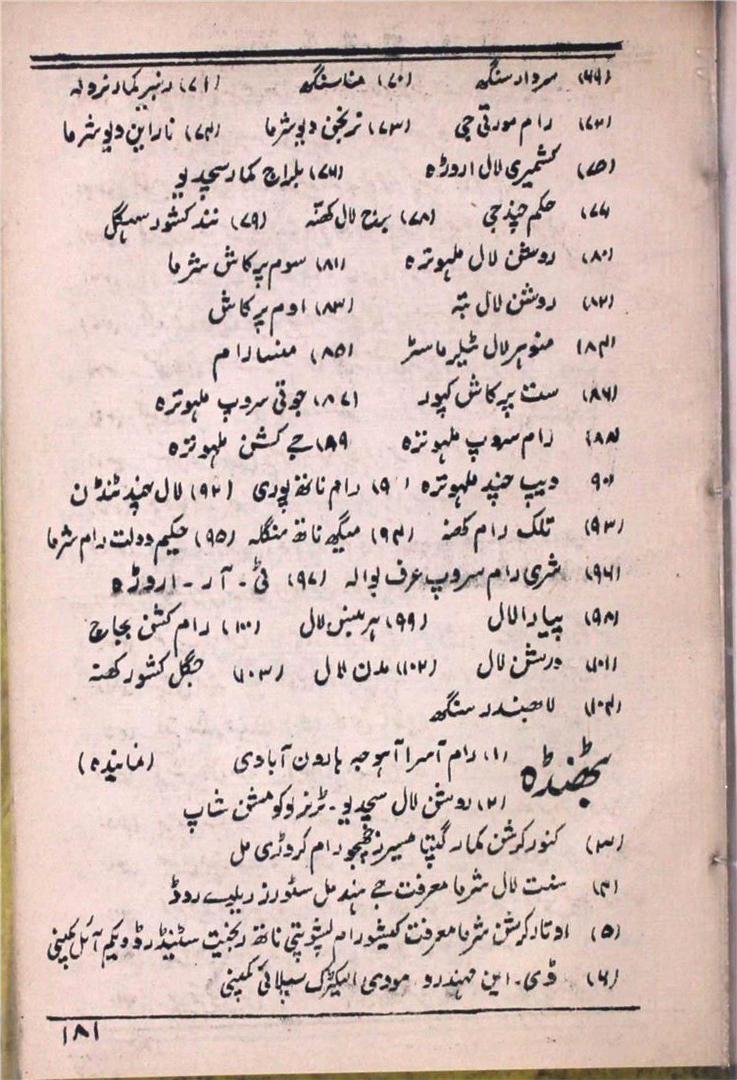 (۶۹) سردار سنگھ (۷۰) منا سنگھ (۷۱) رنبیر کمار نرولہ
(۷۲) رام مورتی جی (۷۳) نرنجن دیو شرما (۷۴) نارائن دیو شرما
(۷۵) کشمیری لال اروڑہ (۷۶) بلراج کمار سچدیو
۷۷) حکم چند جی (۷۸) برج لال کھنہ (۷۹) نند کشور سہگل
(۸۰) روشن لال ملہوترہ (۸۱) سوم پرکاش شرما
(۸۲) روشن لال بتہ (۸۳) اوم پرکاش
(۸۴) منوہر لال ٹیلر ماسٹر (۸۵) منسا رام
(۸۶) ست پرکاش کپور (۸۷) جوتی سروپ ملہوترہ
(۸۸) رام سروپ ملہوترہ (۸۹) جے کشن ملہوترہ
(۹۰) دیپ چند ملہوترہ (۹۱) رام ناتھ پوری (۹۲) لال چند ٹنڈن
(۹۳) تلک رام کھنہ (۹۴) میگھ ناتھ منگلہ (۹۵) حکیم دولت رام شرما
(۹۶) شری رام سروپ عرف بوالہ (۹۷) ٹی۔ آر۔ اروڑہ
(۹۸) پیارا لال (۹۹) ہربنس لال (۱۰۰) رام کشن بجاج
(۱۰۱) درشن لال (۱۰۲) مدن لال (۱۰۳) جگل کشور کھنہ
(۱۰۴) لاھبندر سنگھ
بھٹنڈہ (۱) رام آسرا آہوجہ ہارون آبادی (نمائندہ)
(۲) روشن لال سچدیو۔ ٹرنر لوکومشن شاپ
(۳) کنور کرشن کمار گپتا میسرز چھجو رام کروڑی مل
(۴) سنت لال شرما معرفت جے ہند مل سٹورز ریلیے روڈ
(۵) اوتار کرشن شرما معرفت کیشو رام پشوپتی ناتھ ریجنیت سٹینڈرڈ ویکم آئل کمپنی
(۶) ڈی۔ این مہندرو مودی الیکٹرک سپلائی کمپنی
۱۸۱